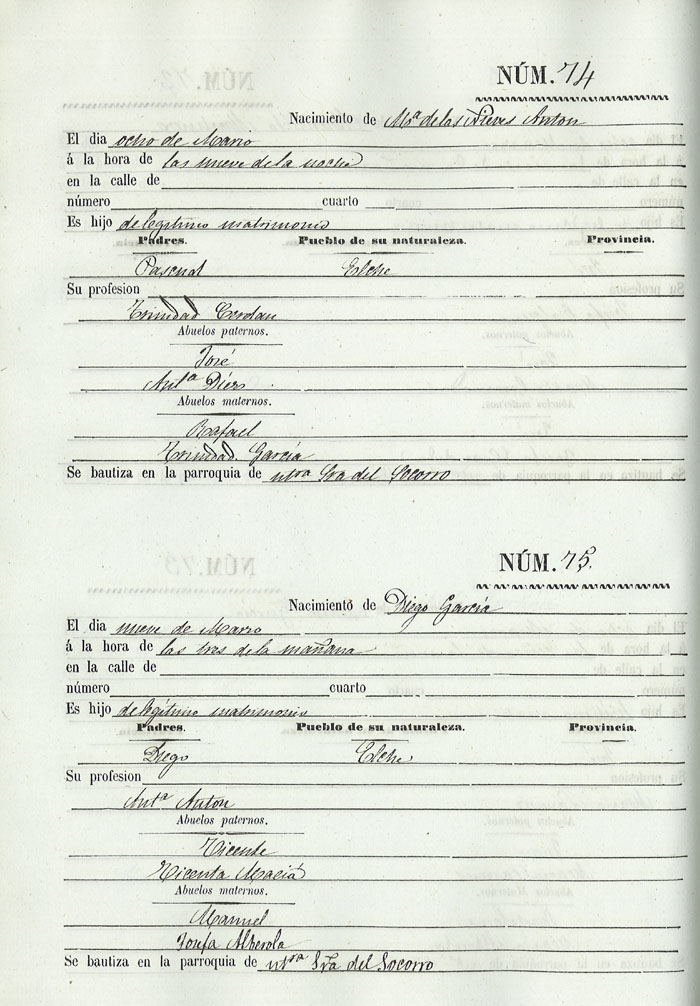 NÚM. 74
Nacimiento de Mª de las Nieves Anton
El dia ocho de Marzo
á la hora de las nueve de la noche
en la calle de
número cuarto
Es hijo de legitimo matrimonio
Padres. Pueblo de su naturaleza. Provincia.
Pascual Elche
Su profesion
Trinidad Cerdan
Abuelos paternos.
José
Antª Diers
Abuelos maternos.
Rafael
Trinidad García
Se bautiza en la parroquia de ntra Sra del Socorro
NÚM. 75.
Nacimiento de Diego García
El dia nueve de Marzo
á la hora de las tres de la mañana
en la calle de
número cuarto
Es hijo de legitimo matrimonio
Padres. Pueblo de su naturaleza. Provincia.
Diego Elche
Su profesion
Antª Anton
Abuelos paternos.
Vicente
Vicenta Maciá
Abuelos maternos.
Manuel
Josefa Alberola
Se bautiza en la parroquia de ntra Sra del Socorro